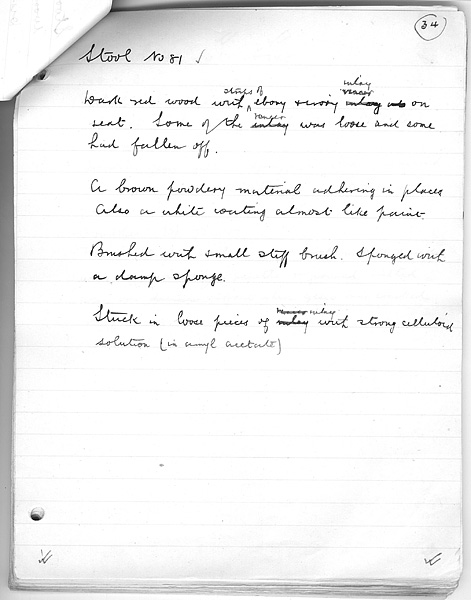 34
Stool No 81 ✓
strips of inlay
Dark red wood with ebony & ivory veneer inlay on
seat. Some of the veneer inlay was loose and some
had fallen off.
A brown powdery material adhering in places
Also a white coating almost like paint.
Brushed with small stiff brush. Sponged with
a damp sponge.
inlay
Stuck in loose pieces of inlay with strong celluloid
solution (in amyl acetate)